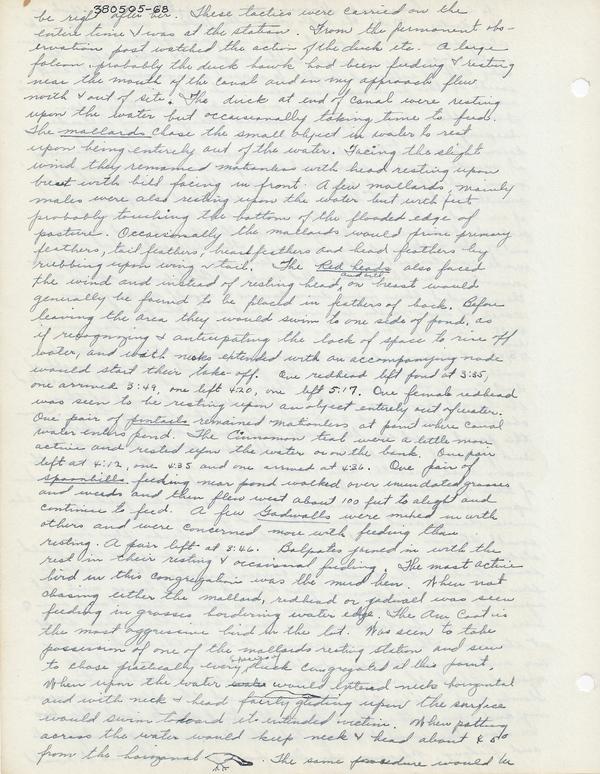 380505-68
be right after her. These tactics were carried on the
entire time I was at the station. From the permanent ob-
ervation post watched the action of the duck etc. A large
falcon, probably the duck hawk had been feeding & resting
near the mouth of the canal and on my approach flew
north & out of site. The duck at end of canal were resting
upon the water but occasionally taking time to feed.
The mallards chose the small object in water to rest
upon being entirely out of the water. Facing the slight
wind they remained motionless with head resting upon
breast with bill facing in front. A few mallards, mainly
males were also resting upon the water but with feet
probably touching the bottom of the flooded edge of
pasture. Occasionally the mallards would prime primary
feathers, tail feathers, breast feathers and head feathers by
rubbing upon wing & tail. The Red heads also faced
the wind and instead of resting head on breast would
generally be found to be placed in feathers of back. Before
leaving the area they would swim to one side of pond, as
if recognizing & anticipating the lack of space to rise off
water, and with necks extended with an accompanying node
would start their take-off. One redhead left pond at 3:35,
one arrived 3:49, one left 4:20, one left 5:17. One female redhead
was seen to be resting upon an object entirely out of water.
One pair of pintails remained motionless at point where canal
water enters pond. The Cinnamon teal were a little more
active and rested upon the water or on the bank. One pair
left at 4:12, one 4:35 and one arrived at 4:36. One pair of
spoonbills feeding near pond walked over inundated grasses
and weeds and then flew west about 100 feet to alight and
continue to feed. A few Gadwalls were mixed in with
others and were concerned more with feeding than
resting. A pair left at 3:46. Balpates joined in with the
rest in their resting & occasional feeding. The most active
bird in this congregation was the mud hen. When not
chasing either the mallard, redhead or gadwall was seen
feeding in grasses bordering water edge. The Am Coot is
the most aggressive bird in the lot. Was seen to take
possession of one of the mallards resting station and seen
to chase practically every species of duck congregated at this point.
When upon the water would extend necks horizontal
and with neck & head fairly gliding upon the surface
would swim toward its intended victim. When patting
across the water would keep neck & head about 45°
from the horizonal. The same procedure would be